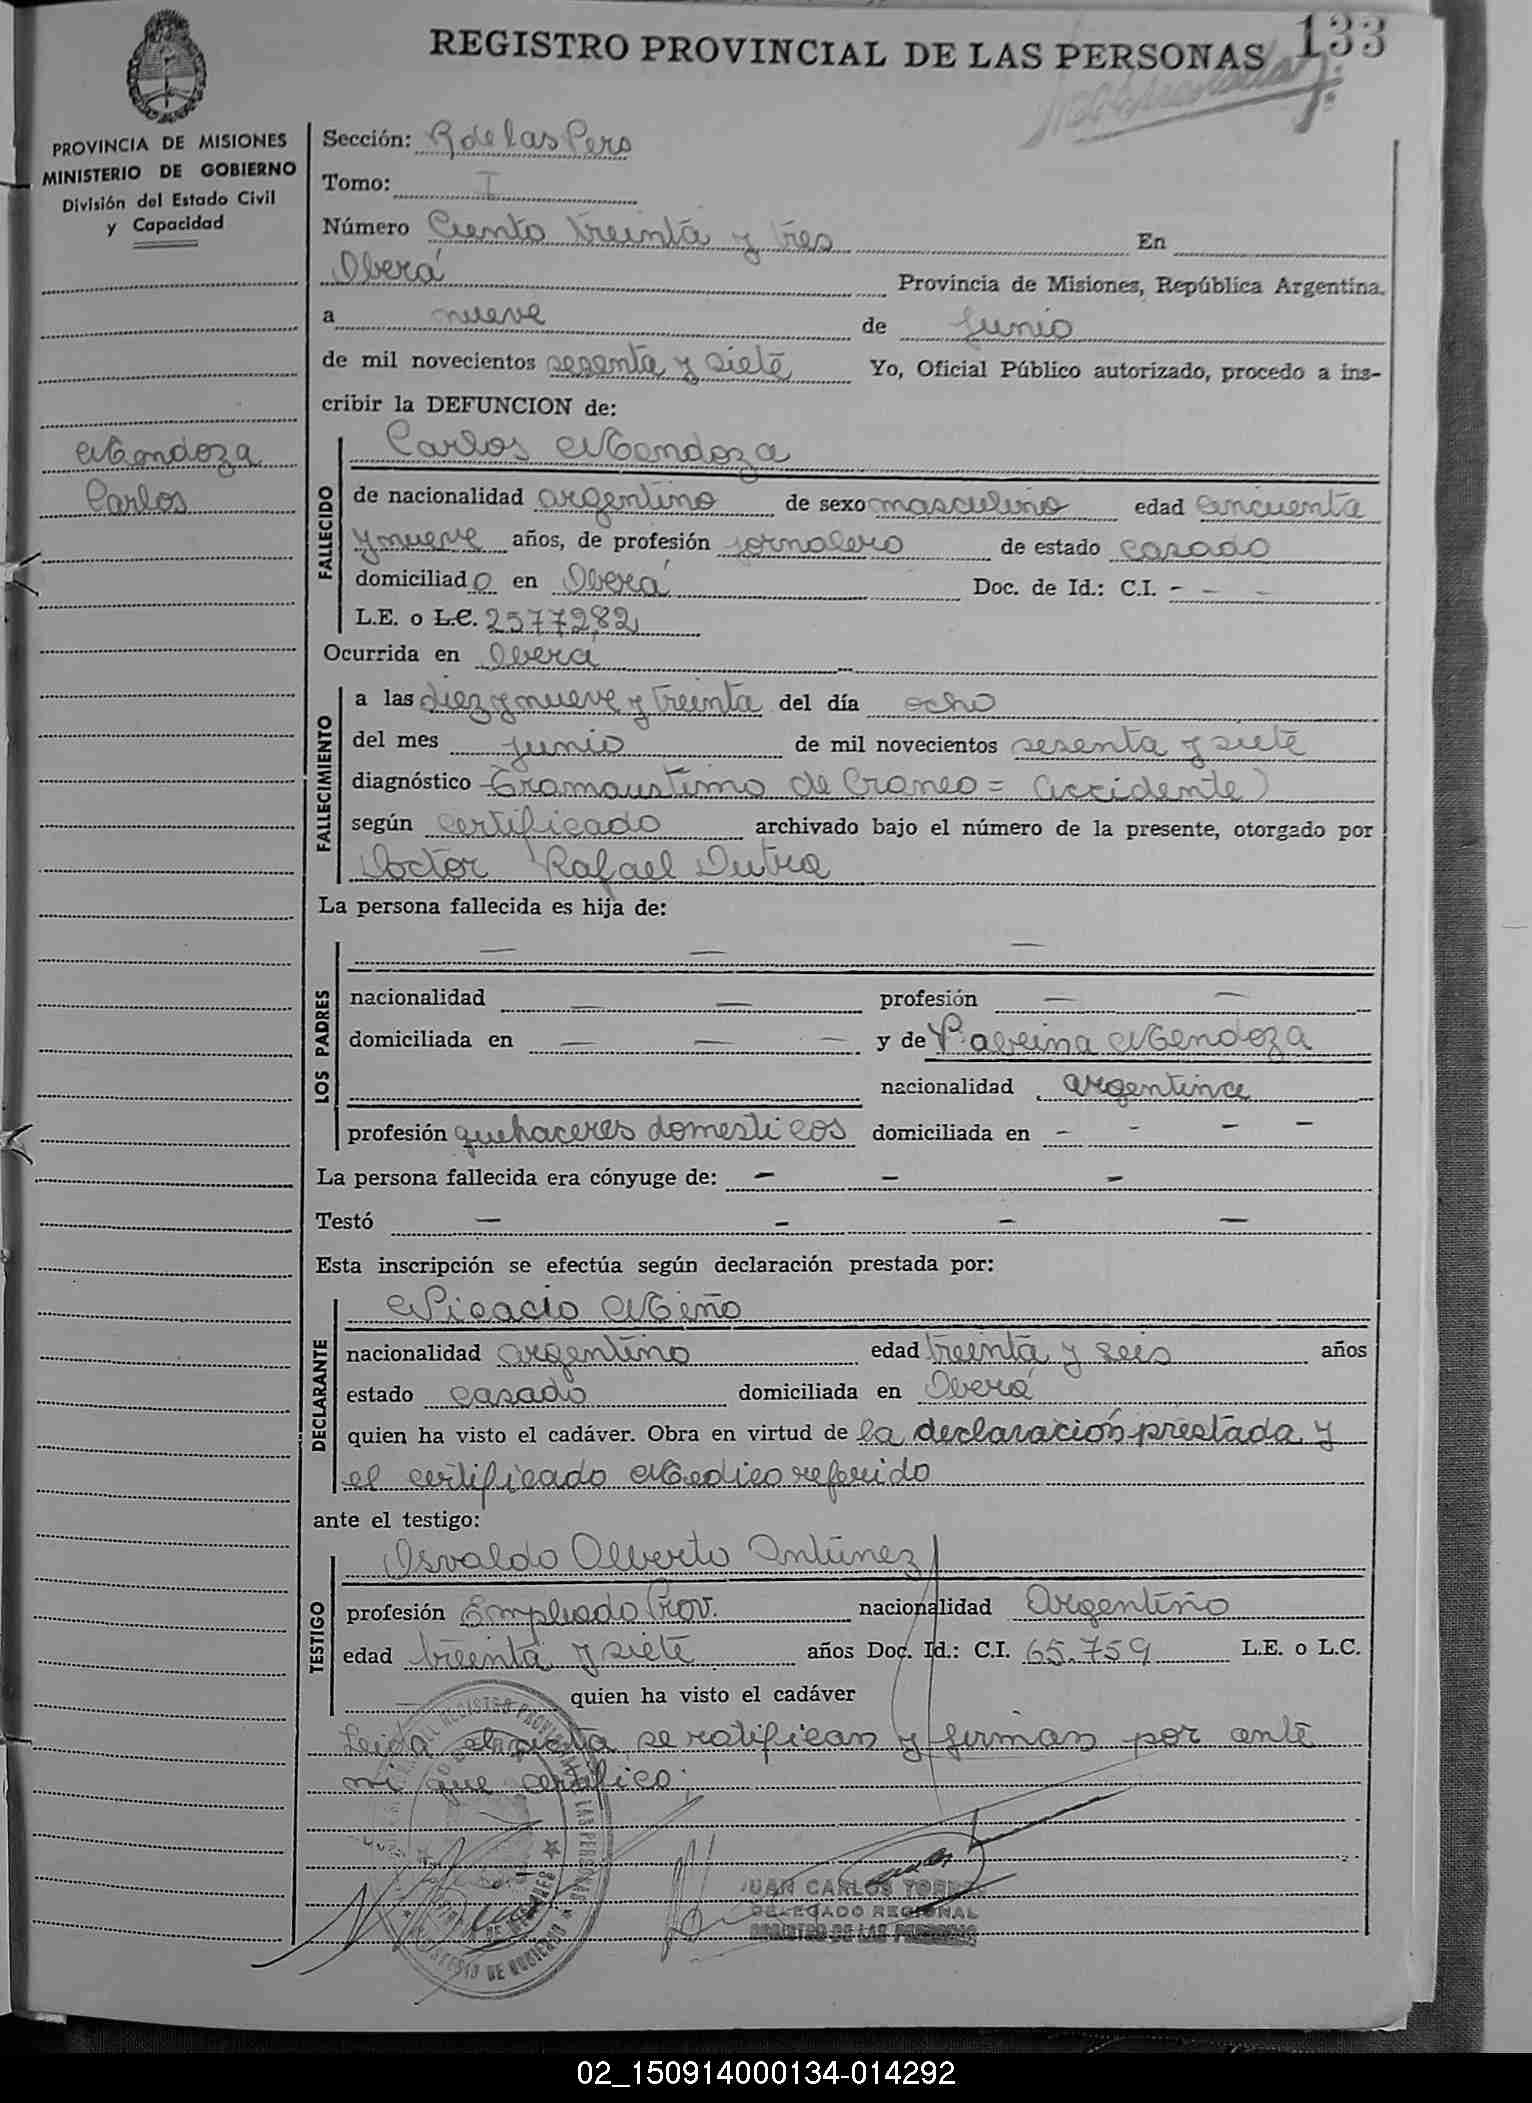 REGISTRO PROVINCIAL DE LAS PERSONAS 133
PROVINCIA DE MISIONES
MINISTERIO DE GOBIERNO
División del Estado Civil
y Capacidad
Mendoza
Carlos
Sección: R de las Pers
Tomo: I
Número Ciento treinta y tres En
Oberá Provincia de Misiones, República Argentina.
a nueve de Junio
de mil novecientos sesenta y siete Yo, Oficial Público autorizado, procedo a ins-
cribir la DEFUNCION de:
FALLECIDO
Carlos Mendoza
de nacionalidad argentino de sexo masculino edad cincuenta
y nueve años, de profesión jornalero de estado casado
domiciliado en Oberá Doc. de Id.: C.I. - - -
L.E. o L.C. 2577282
Ocurrida en Oberá
FALLECIMIENTO
a las diez y nueve y treinta del día ocho
del mes Junio de mil novecientos sesenta y siete
diagnóstico Tramaustimo de Craneo = accidente)
según certificado archivado bajo el número de la presente, otorgado por
Doctor Rafael Dutra
La persona fallecida es hija de:
LOS PADRES
— — —
nacionalidad — — profesión — —
domiciliada en — — — y de Paveina Mendoza
nacionalidad argentina
profesión quehaceres domesticos domiciliada en - - - -
La persona fallecida era cónyuge de: - - -
Testó — - - —
Esta inscripción se efectúa según declaración prestada por:
DECLARANTE
Nicacio Meño
nacionalidad argentino edad treinta y seis años
estado casado domiciliada en Oberá
quien ha visto el cadáver. Obra en virtud de la declaración prestada y
el certificado Medico referido
ante el testigo:
TESTIGO
Osvaldo Alberto Antúnez
profesión Empleado Prov. nacionalidad Argentino
edad treinta y siete años Doc. Id.: C.I. 65.759 L.E. o L.C.
quien ha visto el cadáver
Leida el acta se ratifican y firman por ante
mi que certifico.
JUAN CARLOS TORRES
DELEGADO REGIONAL
REGISTRO DE LAS PERSONAS
02_150914000134-014292